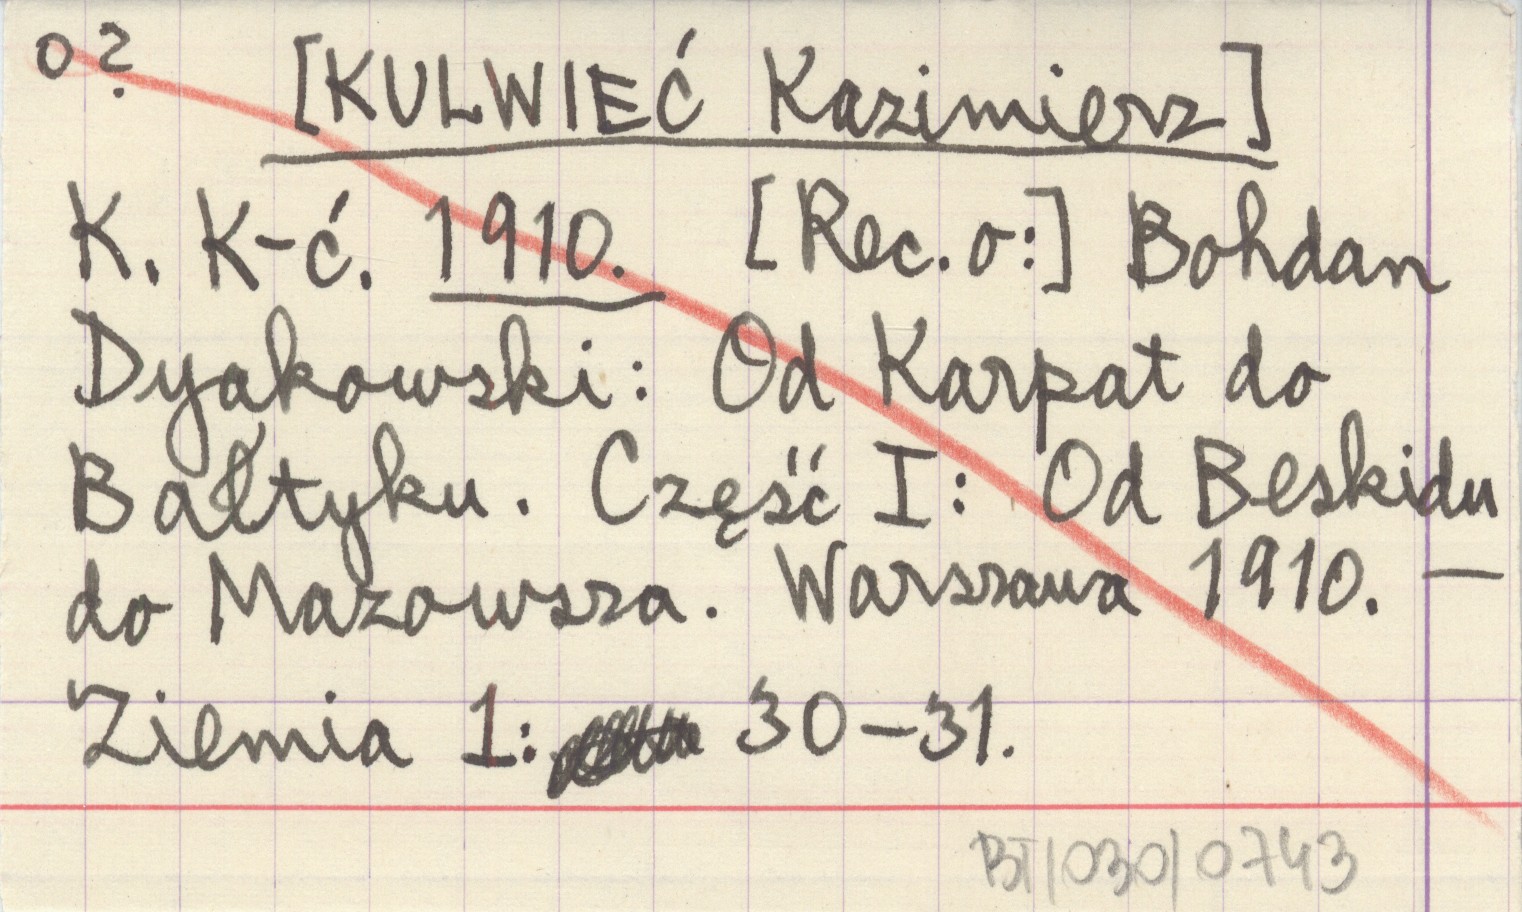 o ?
[KULWIEĆ Kazimierz]
K. K-ć. 1910. [Rec. o:] Bohdan
Dyakowski: Od Karpat do
Bałtyku. Część I: Od Beskidu
do Mazowsza. Warszawa 1910. —
Ziemia 1: 30-31.
BT/030/0743